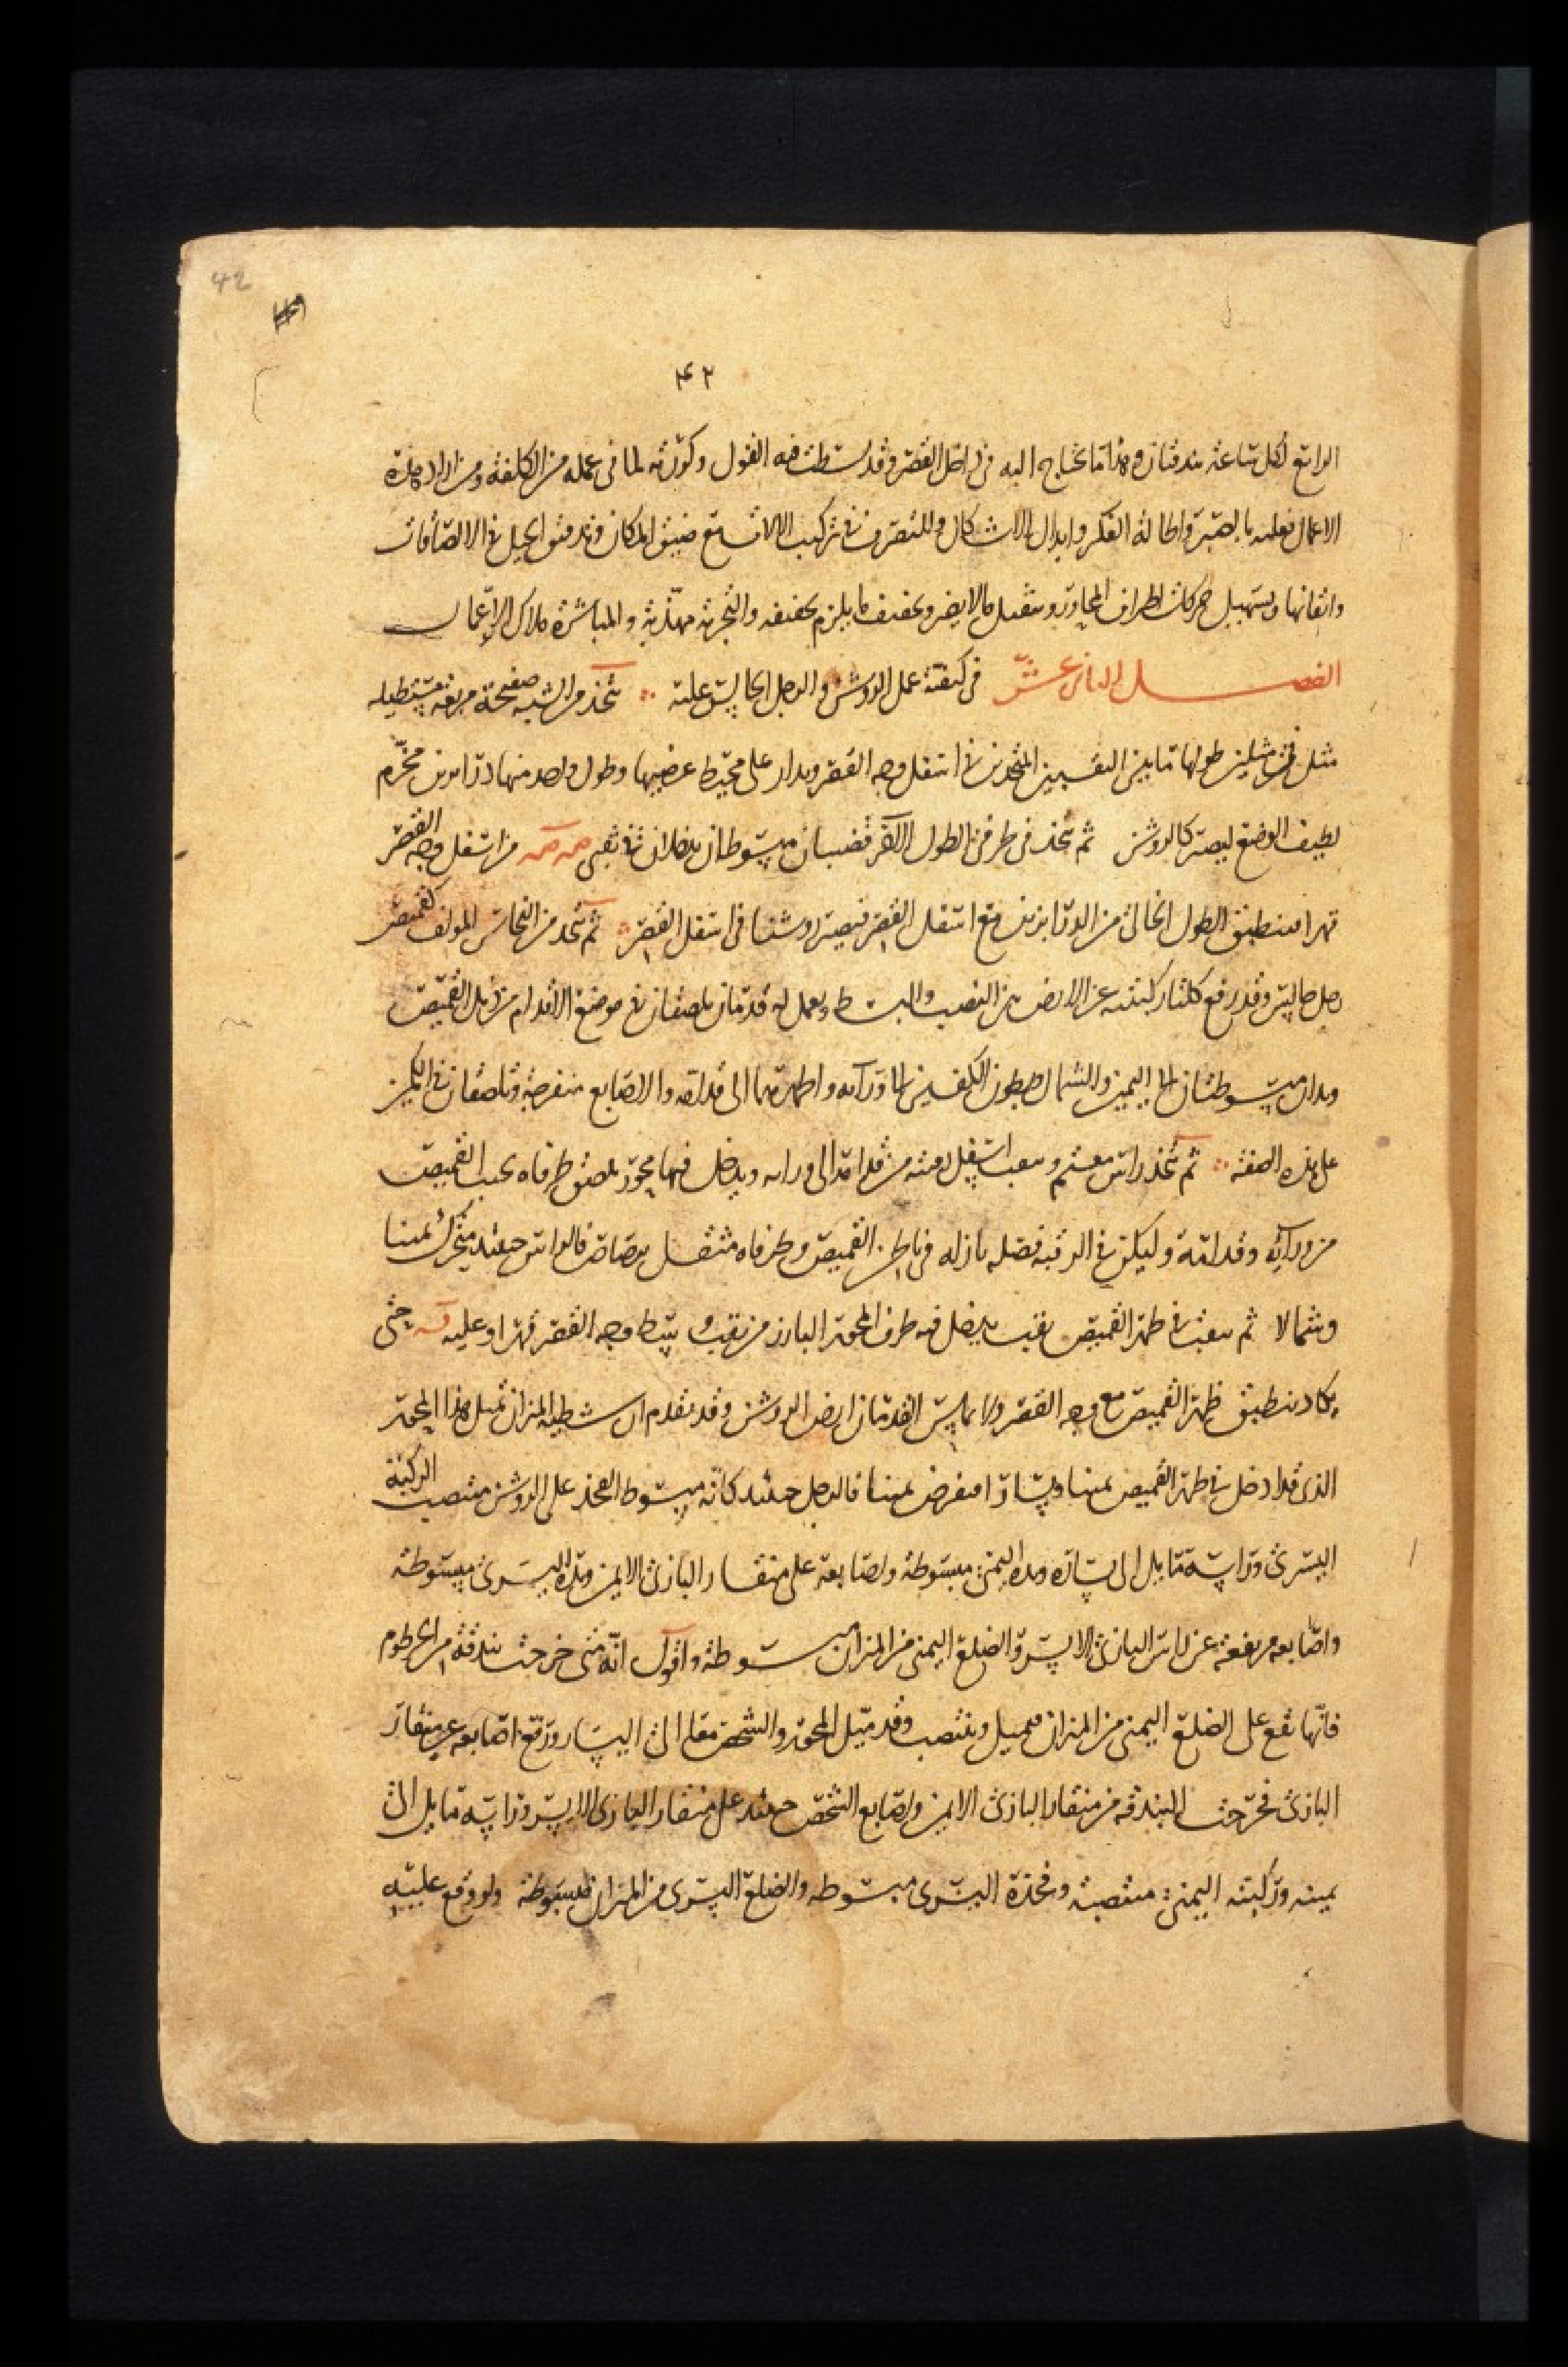 42
۴۲
الرابع لكل ساعة بندقتان وهذا ما يحتاج اليه في داخل القصر وقد بسطت فيه القول وكررته لما في عمله من الكلفة ومن اراد هذه
الاعمال فعليه بالصبر واطالة الفكر وابدال الاشكال والتصرف في تركيب الالات مع ضيق المكان وتدقيق الحيل في الالصاقات
واتقانها وتسهيل حركات اطراف المحاور وتثقيل ما لا يضر وتخفيف ما يلزم تخفيفه والتجربة مهذبة والمباشرة ملاك الاعمال
الفصل الثاني عشر في كيفية عمل الروشن والرجل الجالس عليه ۞ يتخذ من الشبه صفيحة مربعة مستطيلة
مثل في مثلين طولها ما بين النقبين المتخذين في اسفل وجه القصر ويدار على محيط عرضيها وطول واحد منها درابزين مخرم
لطيف الوضع ليصير كالروشن ثم يتخذ في طرفي الطول الاخر قضيبان مبسوطان يدخلان في ثقبي صه صه من اسفل وجه القصر
قهرا فينطبق الطول الخالي من الدرابزين مع اسفل القصر فيصير روشنا في اسفل القصر ۞ ثم يتخذ من النحاس المؤلف كقميص
رجل جالس وقد رفع كلتا ركبتيه عن الارض بين النصب والبسط ويعمل له قدمان يلصقان في موضع الاقدام من ذيل القميص
ويدان مبسوطتان الى اليمين والشمال وبطون الكفين الى ورائه واظهرهما الى قدامه والاصابع منفرجة وتلصقان في الكمين
على هذه الصفة ۞ ثم يتخذ راس معمم ويثقب اسفل رقبته من قدامه الى ورائه ويدخل فيها محور يلصق طرفاه بجيب القميص
من ورائه وقدامه وليكن في الرقبة فضلة نازلة في باطن القميص وطرفاه مثقل برصاص فالراس حينئذ يتحرك يمينا
وشمالا ثم يثقب في ظهر القميص نقب يدخل فيه طرف المحور البارز من نقب وسط وجه القصر قهرا وعليه قـه حتى
يكاد ينطبق ظهر القميص مع وجه القصر ولا يماس القدمان ارض الروشن وقد تقدم ان شظية الميزان تميل هذا المحور
الذي قد ادخل في ظهر القميص يمينا ويسارا فيفرض يمينا فالرجل حينئذ كانه مبسوط الفخذ على الروشن منتصب الركبة
اليسرى وراسه مايل الى يساره ويده اليمنى مبسوطة واصابعه على منقار البازي الايمن ويده اليسرى مبسوطة
واصابعه مرتفعة عن راس البازي الايسر والضلع اليمنى من الميزان مبسوطة واقول انه متى خرجت بندقة من الخرطوم
فانها تقع على الضلع اليمنى من الميزان فيميل وينتصب وقد ميل المحور والشخص معا الى اليسار وترتفع اصابعه عن منقار
البازي فخرجت البندقة من منقار البازي الايمن واصابع الشخص حينئذ على منقار البازي الايسر وراسه مايل الى
يمينه وركبته اليمنى منتصبة وفخذه اليسرى مبسوطه والضلع اليسرى من الميزان مبسوطة ولو وقع عليه